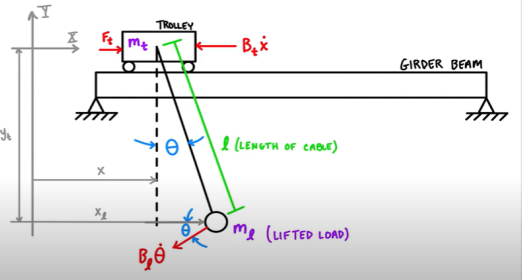 Y
TROLLEY
X
Fₜ
mₜ
Bₜẋ
GIRDER BEAM
yₜ
θ
l (LENGTH OF CABLE)
x
xₗ
θ
mₗ (LIFTED LOAD)
Bₗθ̇